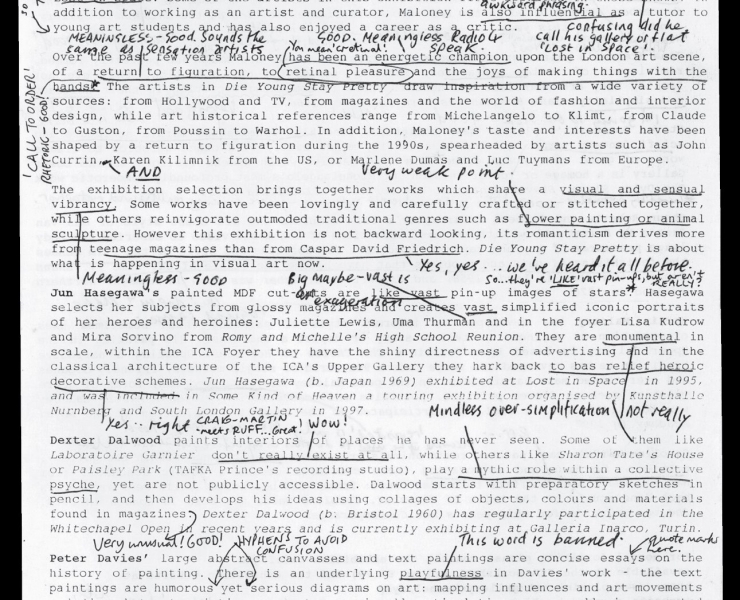 awkward phrasing.
addition to working as an artist and curator, Maloney is also influential as a tutor to
young art students and has also enjoyed a career as a critic.
confusing did he call it as gallery or flat 'Lost in Space'.
MEANINGLESS - Good. Sounds the same as 'Sensation artists
You mean 'cretinal'!
GOOD. Meaningless Radio 4 speak.
Over the past few years Maloney has been an energetic champion upon the London art scene,
of a return to figuration, to retinal pleasure and the joys of making things with the
hands. The artists in Die Young Stay Pretty draw inspiration from a wide variety of
sources: from Hollywood and TV, from magazines and the world of fashion and interior
design, while art historical references range from Michelangelo to Klimt, from Claude
to Guston, from Poussin to Warhol. In addition, Maloney's taste and interests have been
shaped by a return to figuration during the 1990s, spearheaded by artists such as John
Currin, Karen Kilimnik from the US, or Marlene Dumas and Luc Tuymans from Europe.
'CALL TO ORDER'!
RHETORIC - GOOD!
AND
Very weak point.
The exhibition selection brings together works which share a visual and sensual
vibrancy. Some works have been lovingly and carefully crafted or stitched together,
while others reinvigorate outmoded traditional genres such as flower painting or animal
sculpture. However this exhibition is not backward looking, its romanticism derives more
from teenage magazines than from Caspar David Friedrich. Die Young Stay Pretty is about
what is happening in visual art now.
Yes, yes... we've heard it all before.
Meaningless - GOOD
Big maybe - vast is an exageration!
So... they're 'LIKE' vast pin-ups, but aren't REALLY?
Jun Hasegawa's painted MDF cut-outs are like vast pin-up images of stars. Hasegawa
selects her subjects from glossy magazines and creates vast simplified iconic portraits
of her heroes and heroines: Juliette Lewis, Uma Thurman and in the foyer Lisa Kudrow
and Mira Sorvino from Romy and Michelle's High School Reunion. They are monumental in
scale, within the ICA Foyer they have the shiny directness of advertising and in the
classical architecture of the ICA's Upper Gallery they hark back to bas relief heroic
decorative schemes. Jun Hasegawa (b. Japan 1969) exhibited at Lost in Space in 1995,
and was included in Some Kind of Heaven a touring exhibition organised by Kunsthalle
Nurnberg and South London Gallery in 1997.
Yes.. right
CRAIG-MARTIN meets RUFF... Great!
WOW!
Mindless over-simplification
not really
Dexter Dalwood paints interiors of places he has never seen. Some of them like
Laboratoire Garnier don't really exist at all, while others like Sharon Tate's House
or Paisley Park (TAFKA Prince's recording studio), play a mythic role within a collective
psyche, yet are not publicly accessible. Dalwood starts with preparatory sketches in
pencil, and then develops his ideas using collages of objects, colours and materials
found in magazines. Dexter Dalwood (b. Bristol 1960) has regularly participated in the
Whitechapel Open in recent years and is currently exhibiting at Galleria Inarco, Turin.
Very unusual! GOOD!
HYPHENS TO AVOID CONFUSION
This word is banned.
Quote marks here.
Peter Davies' large abstract canvasses and text paintings are concise essays on the
history of painting. There is an underlying playfulness in Davies' work - the text
paintings are humorous yet serious diagrams on art: mapping influences and art movements